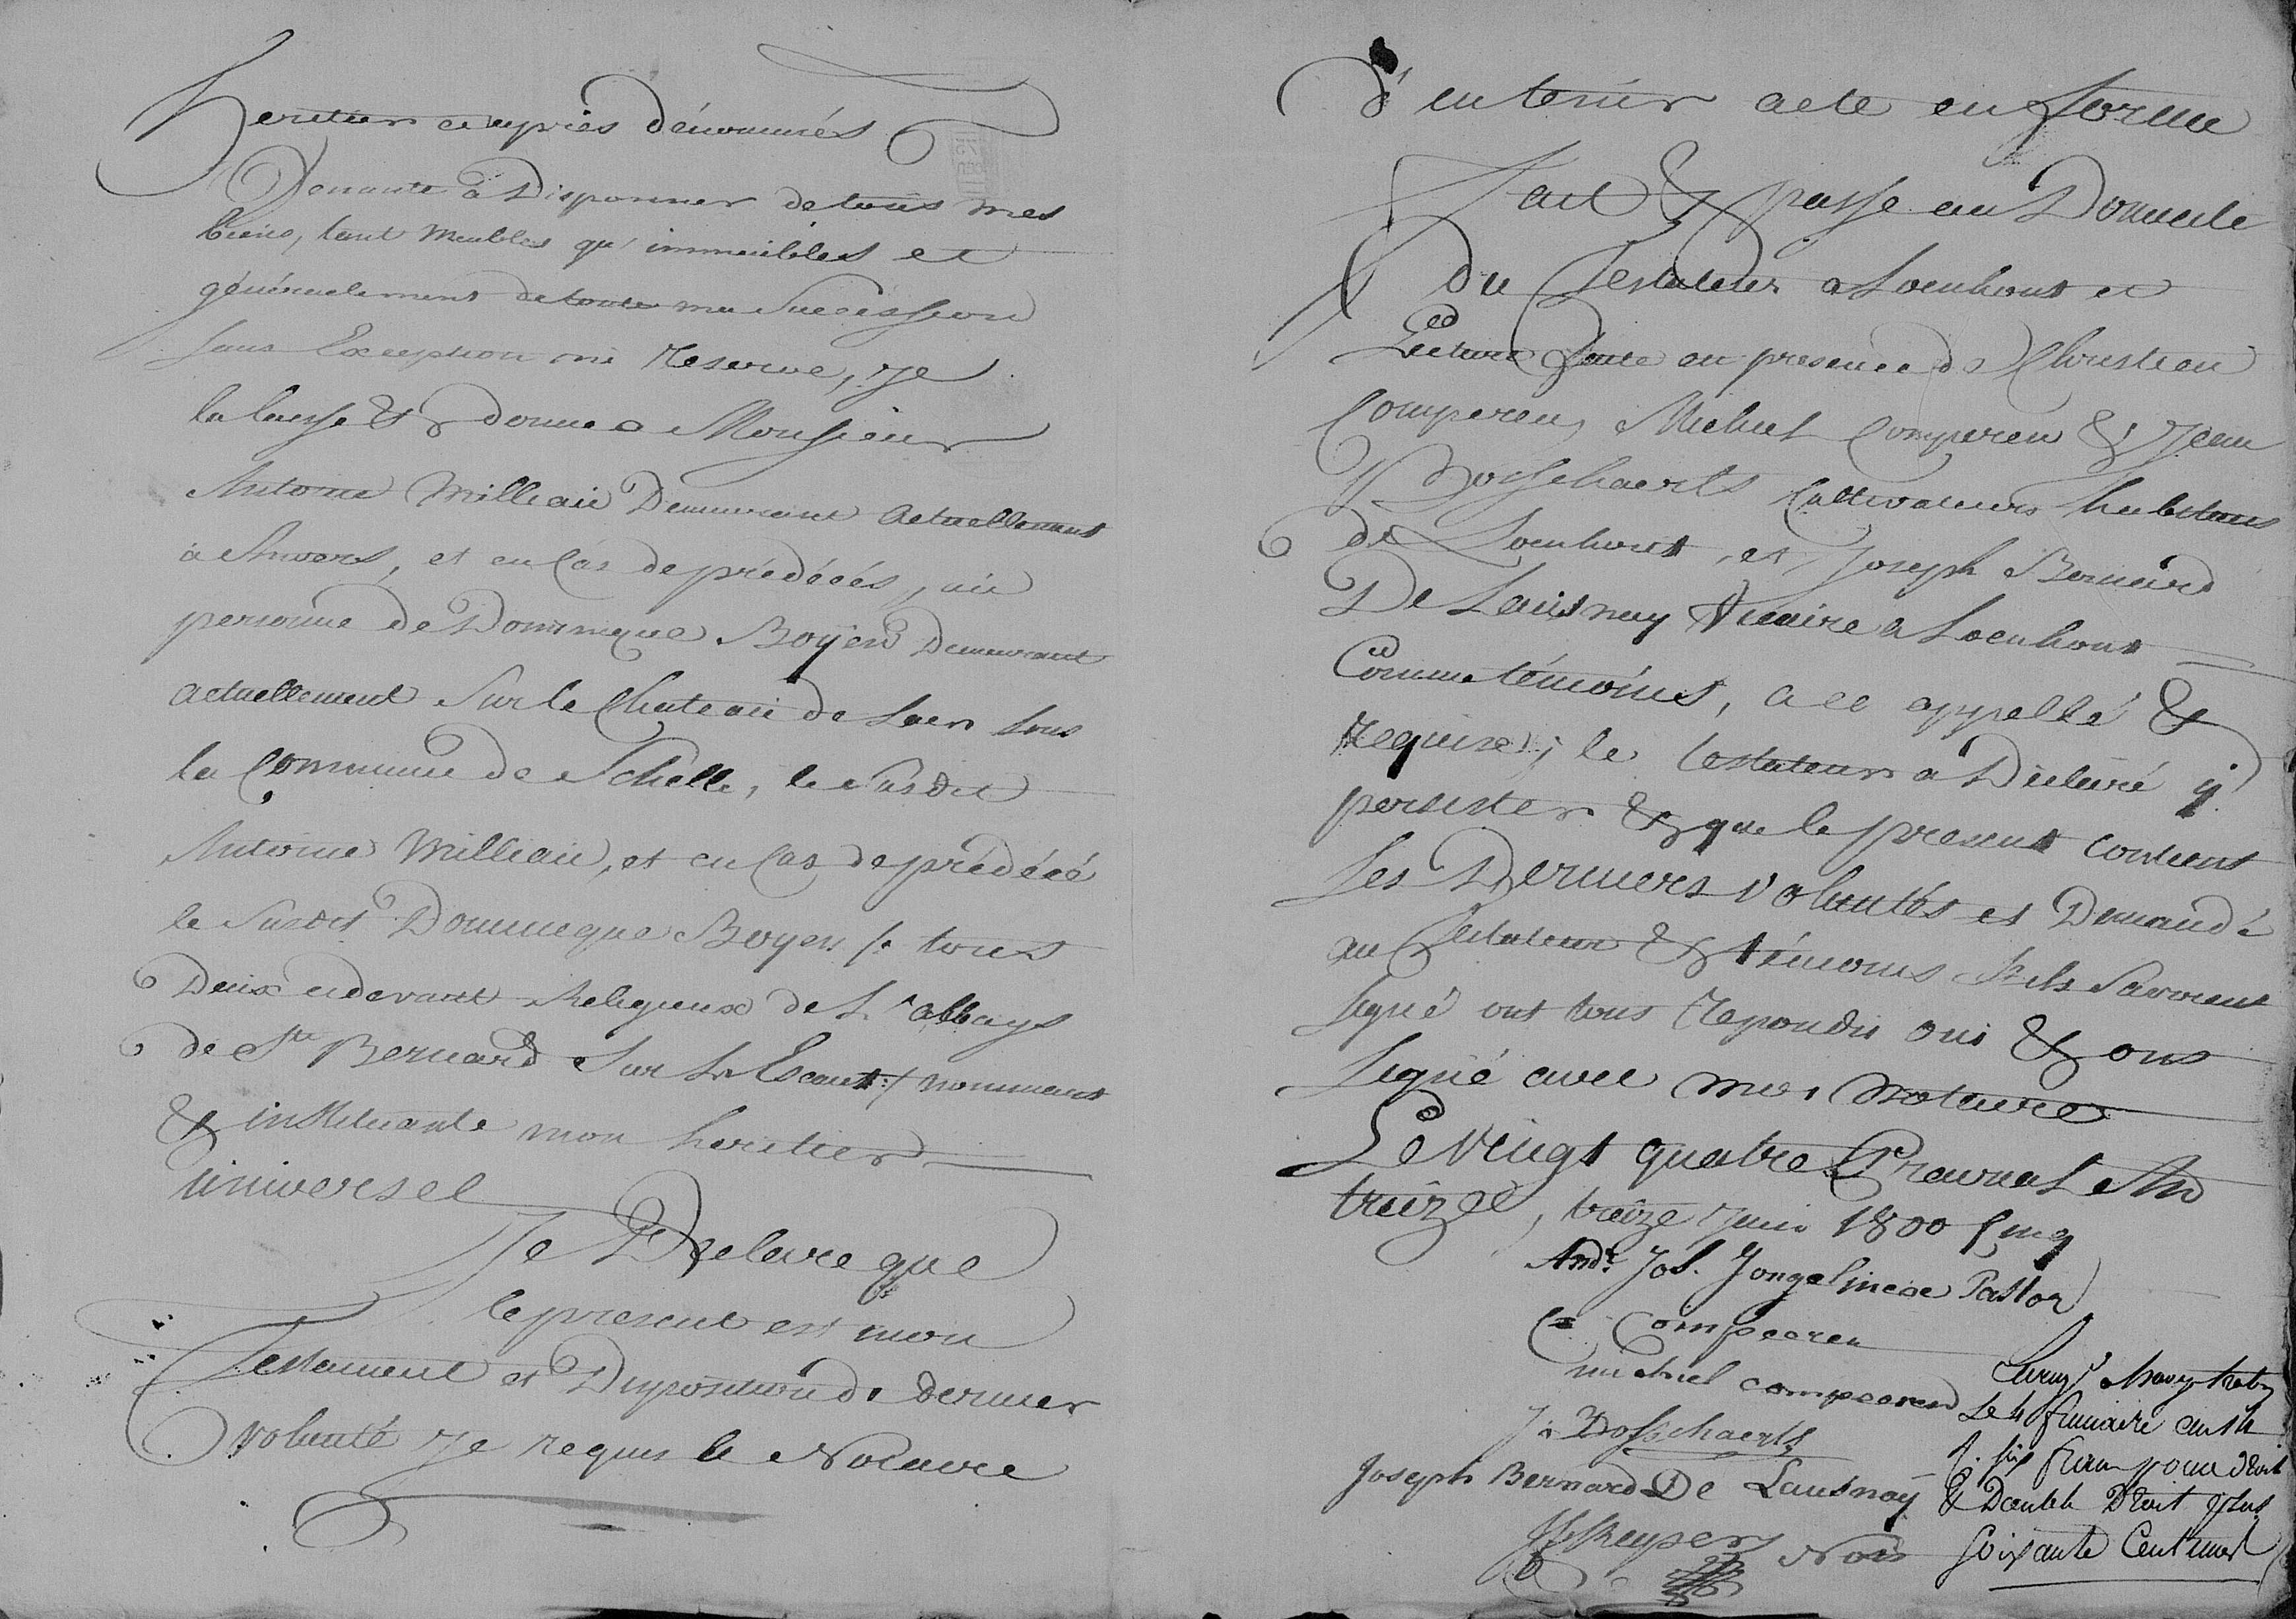 heritier ci apries dénommés
Venante à Disponner de tous mes
biens, tant Meubles qu'immeubles et
généruelement de toute ma Succession
sans Exception ni reserve, je
la laisse & donne a Monsieur
Antoine Milleau Demeurant Actuellement
à Anvers, et en Cas de prédécés, au
personne de Dominique Boÿen Demeurant
actuellement Sur le Chateau de Laer sous
la Commune de Schelle, le Susdit
Antoine Milleau, et en Cas de prédécé
le Susdit Dominique Boyen /: tous
Deux cidevant Religieux de L'abbays
de Ste Bernard Sur L'Escaut :/ nommant
& instituante mon heritier
universel
Je Declare que
le present est mon
Testament et Disposition de dernier
volonté je requis le Notaire
d'en tenir acte en forme
Fait & passé au Domicile
du Testateur a Loenhout et
Lecture faite en presence de Christian
Comperen, Michiel Comperen & Jean
Bosschaerts Cultivateurs habitans
de Loenhout, et Joseph Bernard
De Lausnay Vicaire a Loenhout
Comme témoins, a ce appellé &
requise; le testateur a Déclaré ÿ
persister & que le present contient
Ses Derniers volontés et Demandé
au Testateur & témoins S'ils Savoient
signé ont tous repondu oui & ont
signé avec moi Notaire
Le Vingt quatre Prairial An
treize, treize Juin 1800 Cinq
And. Jos. Jongelincx Pastor
C Compeeren
michiel compeeren
J. Bosschaerts
Joseph Bernard De Lausnaÿ
Kuypers Nots
six francs pour droit
& Double Droit plus
soixante Centimes